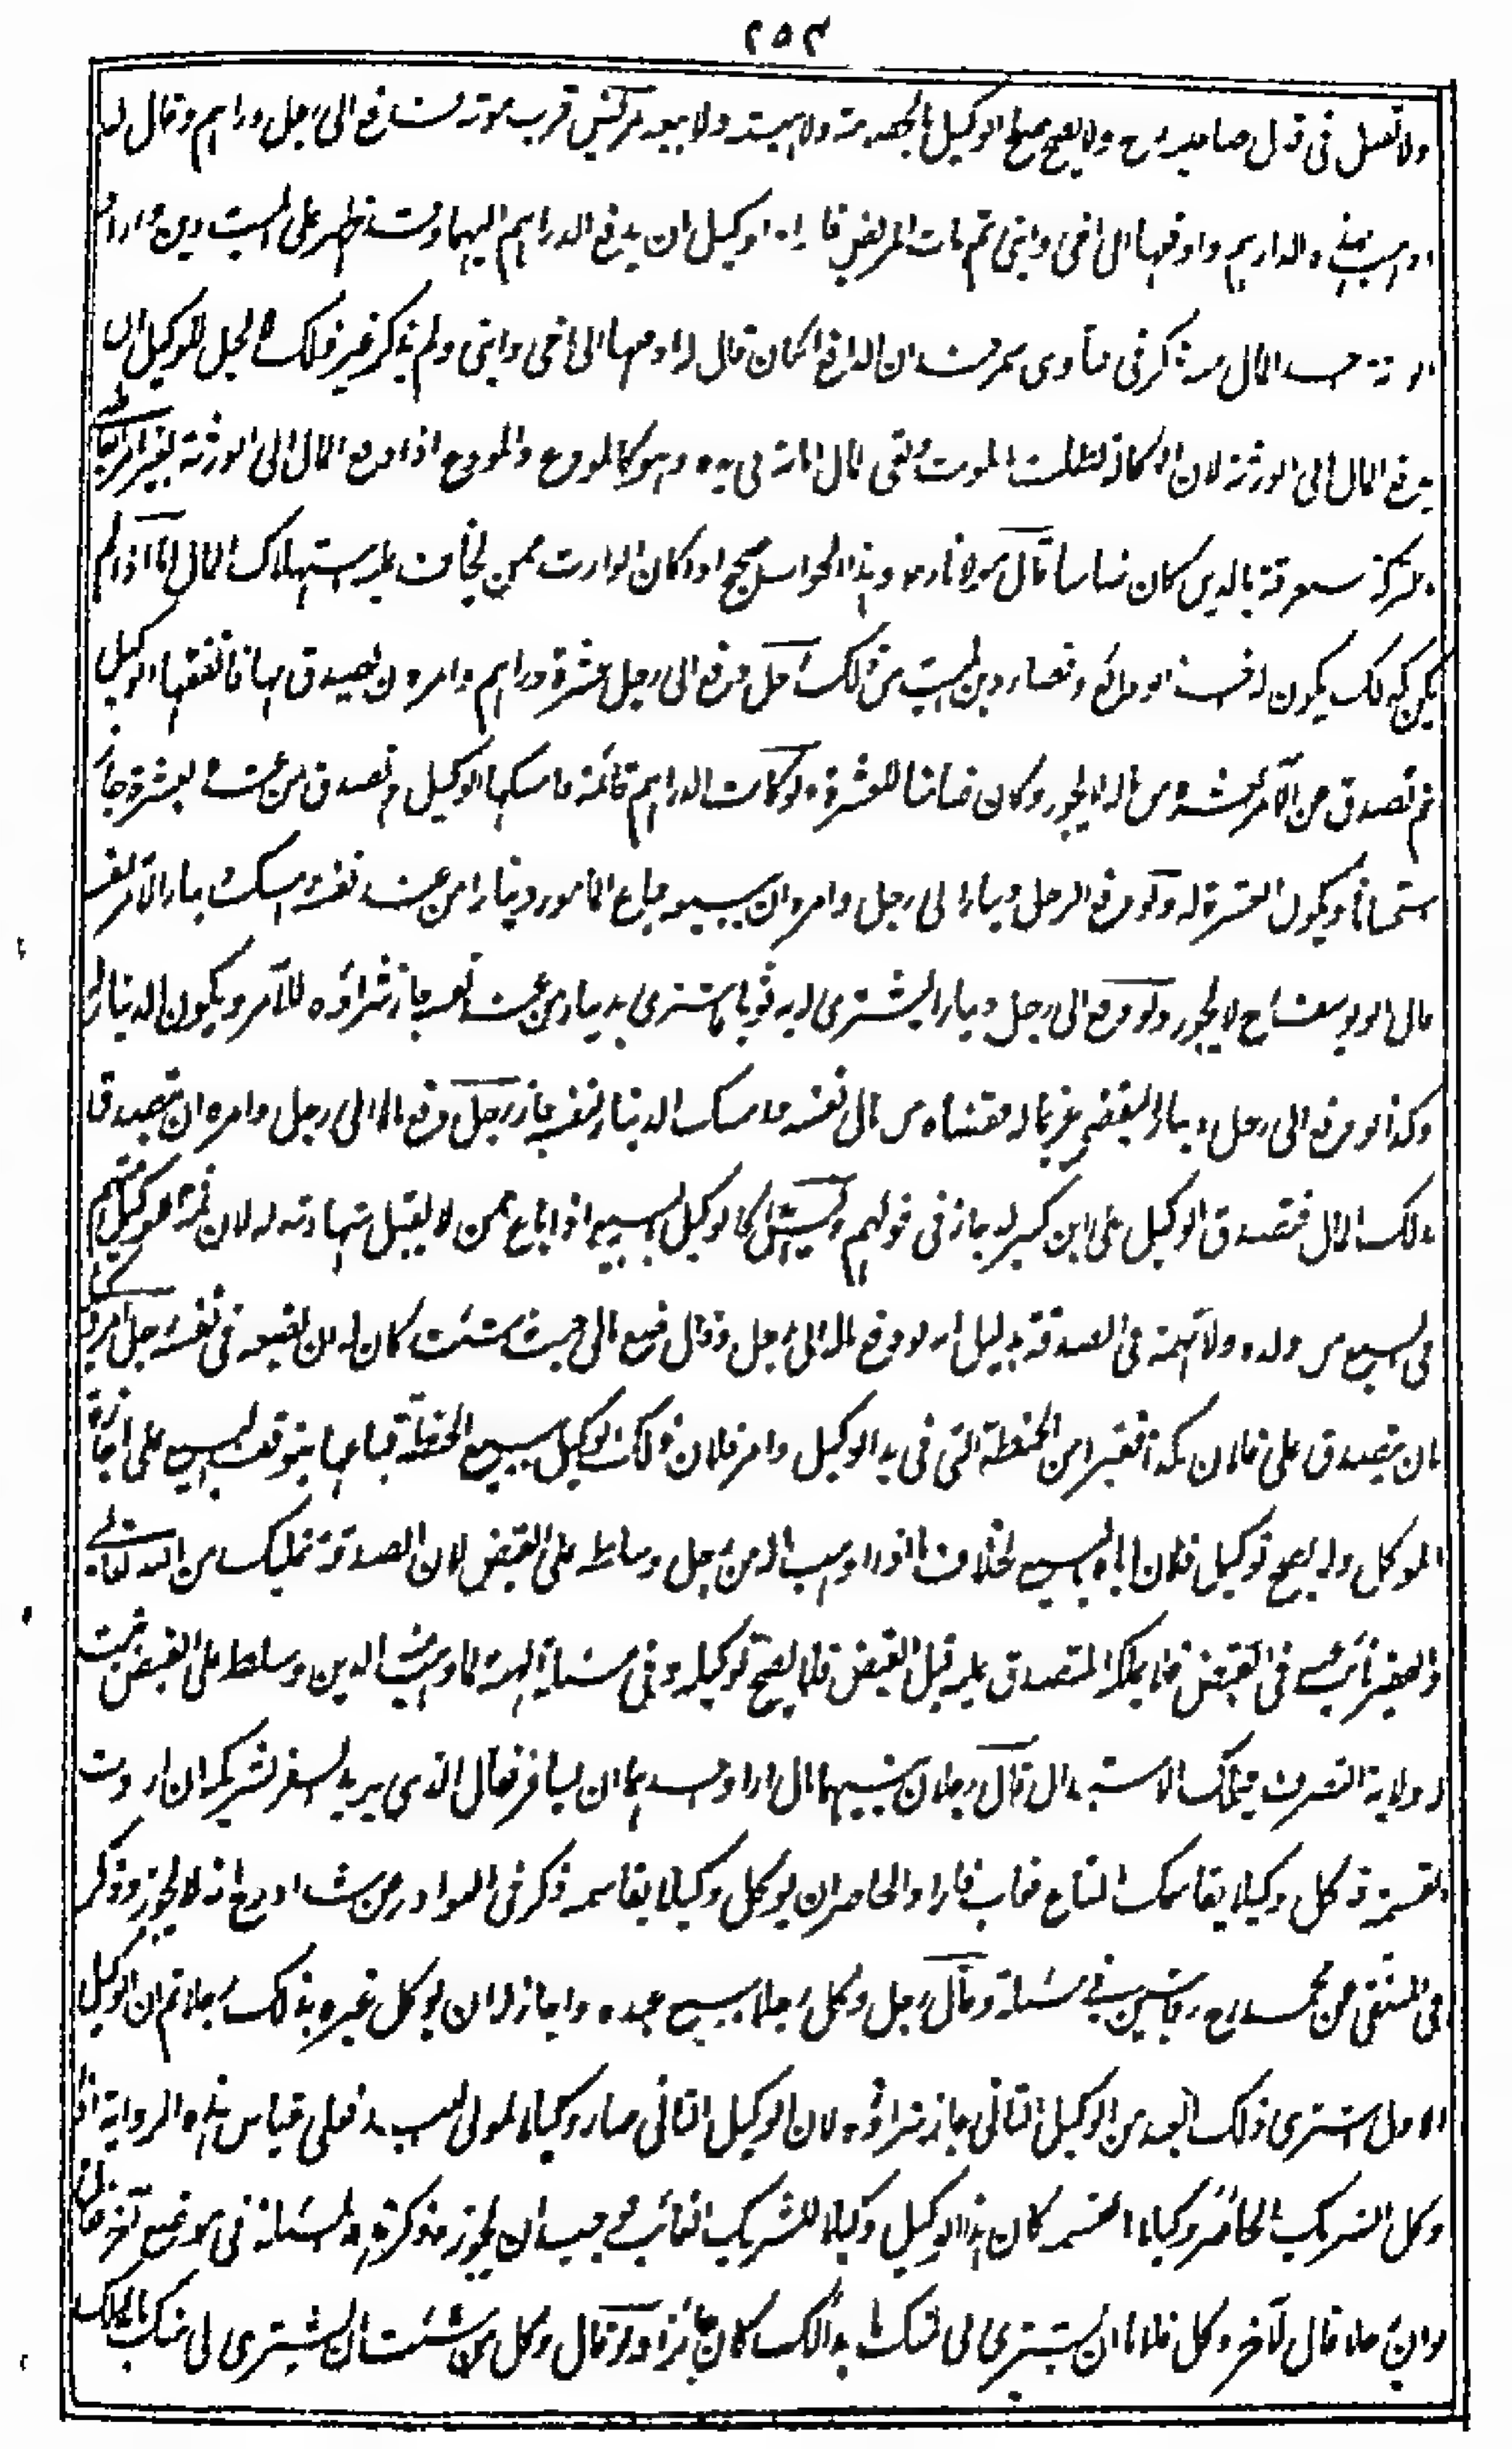 ٢٥٣
ولا تقبل في قول صاحبيه رح ولا يصح صلح الوكيل بالخصومة ولا هبته ولا بيعه مريض قرب موته فدفع الى رجل دراهم وقال له
اذهب بهذه الدراهم وادفعها الى اخي وابني ثم مات المريض فاراد الوكيل ان يدفع الدراهم اليهما وقد ظهر على الميت دين واراد
المال ذكر في فتاوى سمرقند ان الدافع ان كان قال له ادفعها الى اخي وابني ولم يذكر غير ذلك لا يحل للوكيل ان
يدفع المال الى الورثة لان الوكالة بطلت بالموت بقى المال امانة في يده وهو كالمودع والمودع اذا دفع المال الى الورثة بغير امر القاضي
والتركة مستغرقة بالدين كان ضامنا قال مولانا رح وهذا الجواب صحيح اذا كان الوارث ممن يخاف عليه استهلاك المال اما اذا لم
يكن كذلك يكون له دفع الوكيل وقضاء دين الميت من ذلك رجل دفع الى رجل عشرة دراهم وامره ان يتصدق بها فانفقها الوكيل
ثم تصدق عن الآمر بعشرة من ماله لا يجوز وكان ضامنا للعشرة ولو كانت الدراهم قائمة فامسكها الوكيل وتصدق من عنده بعشرة جاز
استحسانا ويكون العشرة له ولو دفع الرجل دينارا الى رجل وامره ان يبيعه فباع المأمور دينارا من عند نفسه وامسك دينار الآمر لنفسه
قال ابو يوسف رح لا يجوز ولو دفع الى رجل دينارا ليشتري له به ثوبا فاشترى بدينار من عند نفسه جاز شراؤه للآمر ويكون الدينار له
وكذا لو دفع الى رجل دينارا ليقضي غريما له فقضاه من مال نفسه وامسك الدينار لنفسه جاز رجل دفع مالا الى رجل وامره ان يتصدق
بذلك المال فتصدق الوكيل على ابن كبير له جاز في قولهم وليس هذا كالوكيل بالبيع اذا باع ممن لا يقبل شهادته له لان ثمة الوكيل متهم
في البيع من ولده ولا تهمة في الصدقة بدليل انه لو دفع المال الى رجل وقال ضع مالي حيث شئت كان له ان يضعه في نفسه رجل امر رجلا
بان يتصدق على فلان بكذا قفيزا من الحنطة التي في يد الوكيل وامر فلان ذلك الوكيل ببيع الحنطة فباعها يتوقف البيع على اجازة
الموكل ولا يصح توكيل فلان اياه بالبيع بخلاف ما اذا وهب الدين من رجل وسلطه على القبض لان الصدقة تمليك من الله تعالى
والفقير نائب في القبض فلا يملك المتصدق عليه قبل القبض فلا يصح توكيله وفي مسئلة الهبة لما وهب الدين وسلطه على القبض ثبت
له ولاية التصرف فيملك الاستبدال قال رجلان بينهما مال اراد احدهما ان يسافر فقال الذي يريد السفر لشريكه ان اردت
القسمة فوكل وكيلا يقاسمك المتاع فغاب فاراد الحاضر ان يوكل وكيلا يقاسمه ذكر في النوادر عن رح انه لا يجوز وذكر
في المنتقى عن محمد رح روايتين في مسئلة وقال رجل وكل رجلا ببيع عبده واجاز له ان يوكل غيره بذلك رجلا ثم ان الوكيل
الاول اشترى ذلك العبد من الوكيل الثاني جاز شراؤه لان الوكيل الثاني صار وكيلا لمولى العبد فعلى قياس هذه الرواية اذا
وكل الشريك الحاضر وكيلا بالقسمة كان هذا الوكيل وكيلا للشريك الغائب فيجب ان يجوز وذكر هذه المسئلة في موضع آخر فقال
لو ان رجلا قال لآخر وكل فلانا ان يشتري لي منك بذلك كان جائزا ولو قال وكل من شئت ان يشتري لي منك